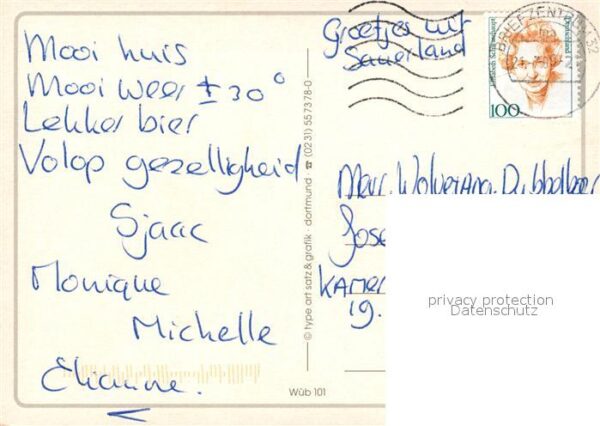 Mooi huis
Mooi weer ± 30°
Lekker bier
Volop gezelligheid
Sjaac
Monique
Michelle
Elianne.
Groetjes uit
Sauerland
BRIEFZENTRUM
Deutschland
100
Mevr.
Jose
KAMER
19.
© type art satz & grafik · dortmund · ☎ (0231) 55 73 78-0
Wüb 101
privacy protection
Datenschutz